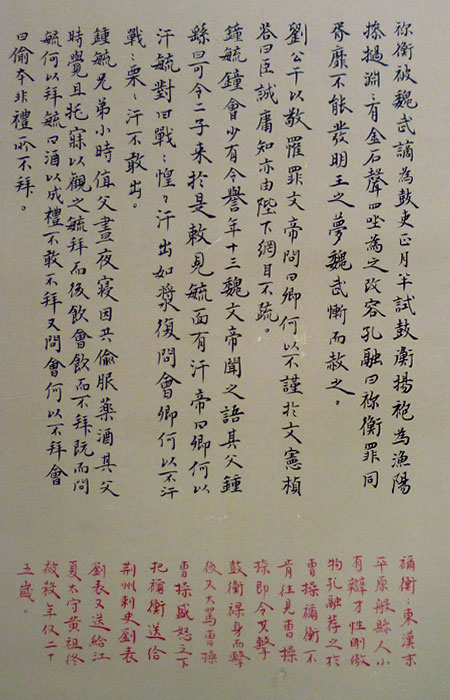 祢衡被魏武謫為鼓吏正月半試鼓衡揚袍為漁陽
摻撾淵〻有金石聲四坐為之改容孔融曰祢衡罪同
胥靡不能發明王之夢魏武慚而赦之。
劉公干以敬罹罪文帝問曰卿何以不謹於文憲楨
答曰臣誠庸知亦由陛下網目不疏。
鍾毓鐘會少有令譽年十三魏文帝聞之語其父鍾
繇曰可令二子来於是敕見毓面有汗帝曰卿何以
汗毓對曰戰〻惶〻汗出如漿復問會卿何以不汗
戰〻栗〻汗不敢出。
鍾毓兄弟小時值父晝夜寢因共偷服藥酒其父
時覺且托寐以觀之毓拜而後飲會飲而不拜既而問
毓何以拜毓曰酒以成禮不敢不拜又問會何以不拜會
曰偷本非禮所不拜。
禰衡：東漢末
平原般縣人小
有辯才性剛傲
物孔融荐之於
曹操禰衡不
肯往見曹操
操即令为擊
鼓衡裸身而擊
後又大罵曹操
曹操盛怒之下
把禰衡送给
荆州刺史劉表
劉表又送給江
夏太守黃祖終
被殺年仅二十
五歲．